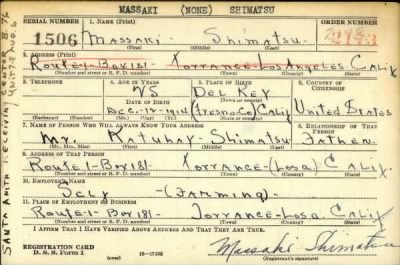 MASSAKI (NONE) SHIMATSU
SERIAL NUMBER 1. NAME (Print) ORDER NUMBER
1506 Massaki Shimatsu
(First) (Middle) (Last)
2. ADDRESS (Print)
Route-1-Box 181- Torrance-Los Angeles Calif
(Number and street or R. F. D. number) (Town) (County) (State)
3. TELEPHONE 4. AGE IN YEARS 5. PLACE OF BIRTH 6. COUNTRY OF CITIZENSHIP
25 Del Rey
DATE OF BIRTH (Town or county)
Dec.-12-1914 (Fresno Co) Calif United States
(Exchange) (No.) (Mo.) (Day) (Yr.) (State or country)
7. NAME OF PERSON WHO WILL ALWAYS KNOW YOUR ADDRESS 8. RELATIONSHIP OF THAT PERSON
Mr. Shimatsu Father
(Mr., Mrs., Miss) (First) (Middle) (Last)
9. ADDRESS OF THAT PERSON
Route 1-Box 181- Torrance-(Los a.) Calif.
(Number and street or R. F. D. number) (Town) (County) (State)
10. EMPLOYER'S NAME
Self -(Farming)
11. PLACE OF EMPLOYMENT OR BUSINESS
Route-1-Box 181- Torrance-Los a. Calif
(Number and street or R. F. D. number) (Town) (County) (State)
I AFFIRM THAT I HAVE VERIFIED ABOVE ANSWERS AND THAT THEY ARE TRUE.
REGISTRATION CARD
D. S. S. Form 1
(over)
Massaki Shimatsu
(Registrant's signature)
SANTA ANITA RECEIVING CENTER